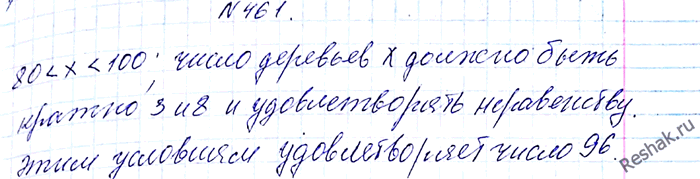 №461.
80<x<100; число деревьев x должно быть
кратно 3 и 8 и удовлетворять неравенству.
этим условиям удовлетворяет число 96.
Reshak.ru